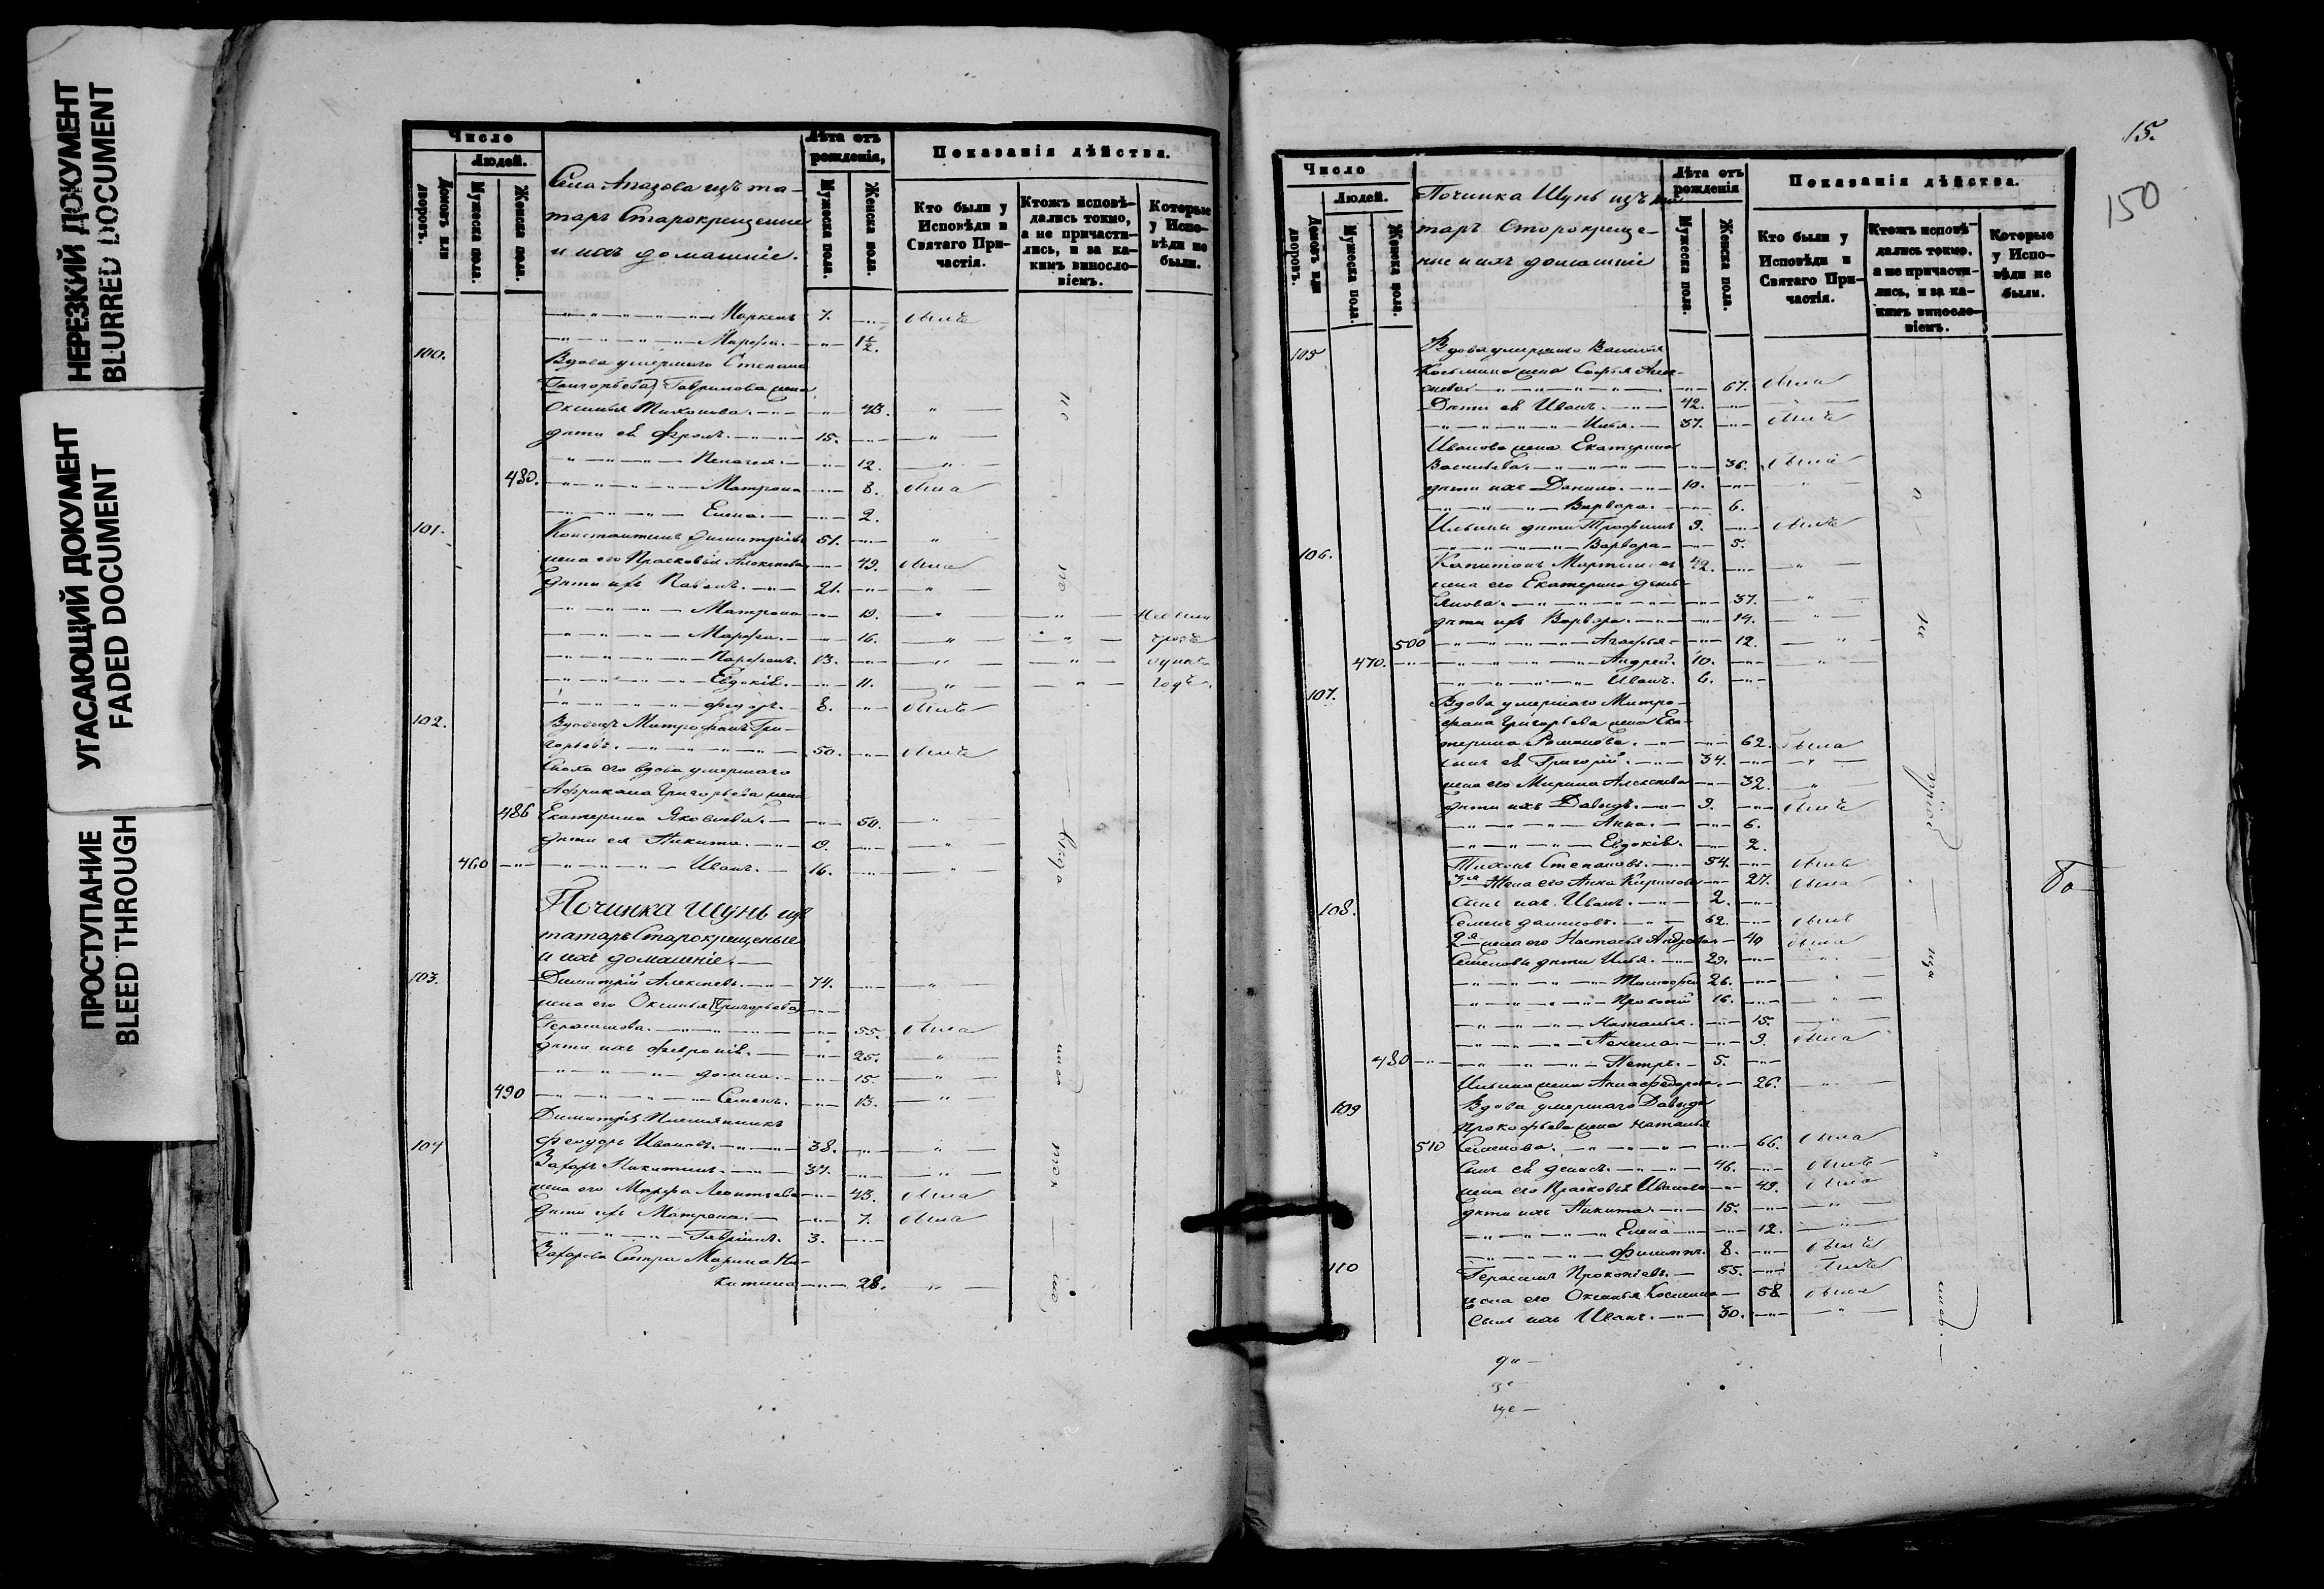 НЕРЕЗКИЙ ДОКУМЕНТ
BLURRED DOCUMENT
УГАСАЮЩИЙ ДОКУМЕНТ
FADED DOCUMENT
ПРОСТУПАНИЕ
BLEED THROUGH
Число
Людей.
Домовъ или дворовъ.
Мужеска пола.
Женска пола.
Села Апазова изъ та-
таръ Старокрещение
и ихъ домашніе.
Лѣта отъ рожденія,
Мужеска пола.
Женска пола.
Показанія дѣйства.
Кто были у Исповѣди и Святаго При-частія.
Ктожъ исповѣ-дались токмо, а не причасти-лись, и за ка-кимъ виносло-віемъ.
Которые у Испо-вѣди не были.
7. былъ
1½.
100. Вдова умершаго Степана
Григорьева Гаврилова жена
43.
дѣти еѣ Фролъ. 15.
12.
480. Матрона 8. была
Елена. 2.
101. Константинъ Димитріевъ 51.
жена его Прасковья Алексѣева 49. была
дѣти ихъ Павелъ. 21.
Матрона 19. не были
Марфа. 16.
13.
Евдокія. 11. годѣ.
8. былъ
102. Вдовецъ Митрофанъ Гри-
горьевъ. 50. былъ
Сноха его вдова умершаго
Африкана Григорьева жена
486 Екатерина Яковлева. 50.
дѣти ея Никита. 19.
460 Иванъ. 16.
Починка Шунь изъ
татаръ Старокрещеные
и ихъ домашніе.
103. Димитрій Алексѣевъ. 74.
жена его Оксинья Григорьева
Герасимова. 55. была
дѣти ихъ Февронія. 25.
Домна. 15.
490 Семенъ. 13.
Димитрія Племянникъ
Феодоръ Ивановъ. 38.
104 Захаръ Никитинъ. 37.
жена его Марфа Леонтьева 43. была
дѣти ихъ Матрона. 7. была
Гавріилъ. 3.
Захарова Сестра Марина Ни-
китина 28.
15.
150
Число
Людей.
Домовъ или дворовъ.
Мужеска пола.
Женска пола.
Починка Шунь изъ та
таръ Старокреще-
ние и ихъ домашніе
Лѣта отъ рожденія
Мужеска пола.
Женска пола.
Показанія дѣйства.
Кто были у Исповѣди и Святаго При-частія.
Ктожъ исповѣ-дались токмо, а не причасти-лись, и за ка-кимъ виносло-віемъ.
Которые у Испо-вѣди не были.
105 Вдова умершаго Василья
Косьмина жена Софья Алек-
сѣева 67. была
Дѣти еѣ Иванъ. 42.
Илья. 37. былъ
Иванова жена Екатерина
Васильева. 36. была
дѣти ихъ Данило. 10.
Варвара. 6.
Ильины дѣти Трофимъ 9. былъ
Варвара 5.
106. Капитонъ 42.
жена его Екатерина Демь-
янова. 37.
дѣти ихъ Варвара. 14.
500 Агафья 12.
470. Андрей. 10.
Иванъ. 6.
107. Вдова умершаго Митро-
фана Григорьева жена Ека-
терина Романова. 62. была
сынъ еѣ Григорій. 34.
жена его Марина Алексѣева 32.
дѣти ихъ Давидъ. 9. былъ
Анна. 6.
Евдокія. 2.
Тихонъ Степановъ. 54. былъ
3я Жена его Анна Кирилова 27. была
Сынъ ихъ Иванъ. 2.
108. Семенъ Даниловъ. 62. былъ
2я жена его Настасья Андреева 40 была
Семеновы дѣти Илья. 29.
Тимофей 26.
Прокопій 16.
Наталья. 15.
9. была
480 Петръ. 5.
Ильина жена Анна Федорова. 26.
109 Вдова умершаго Давида
Прокофьева жена Наталья
510 Семенова. 66. была
Сынъ еѣ Денисъ. 46. былъ
жена его Прасковья Иванова 49. была
дѣти ихъ Никита. 15.
Елена 12.
Филиппъ. 8. былъ
110 Герасимъ Прокопіевъ. 55. былъ
жена его Оксинья Космина 58 была
Сынъ ихъ Иванъ. 30.